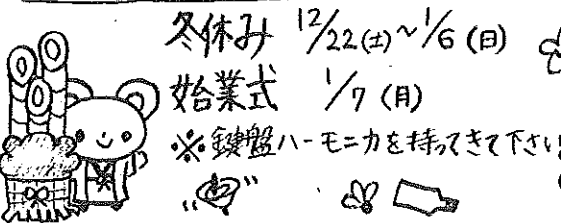 冬休み 12/22(土)~1/6(日)
始業式 1/7(月)
※鍵盤ハーモニカを持ってきて下さい